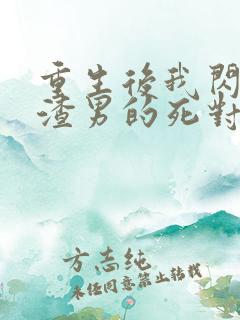 重生後我閃
渣男的死對
方志纯
未经同意禁止转载